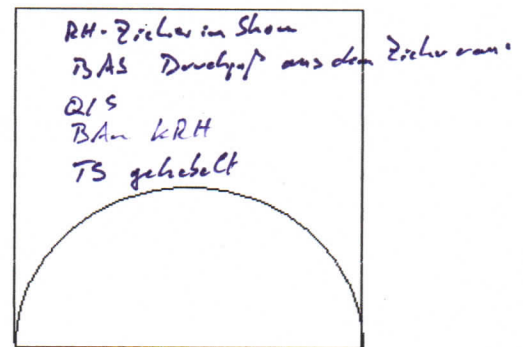 RH-Zieher im Strom
BAS Durchguß aus dem Zieherraum
QIS
BAn kRH
TS gehebelt